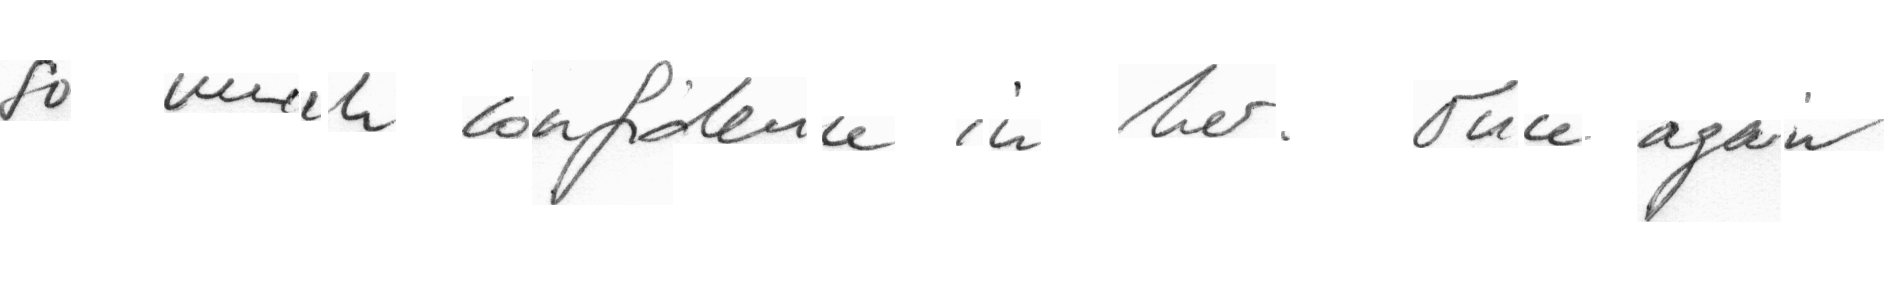 so much confidence in her. Once again